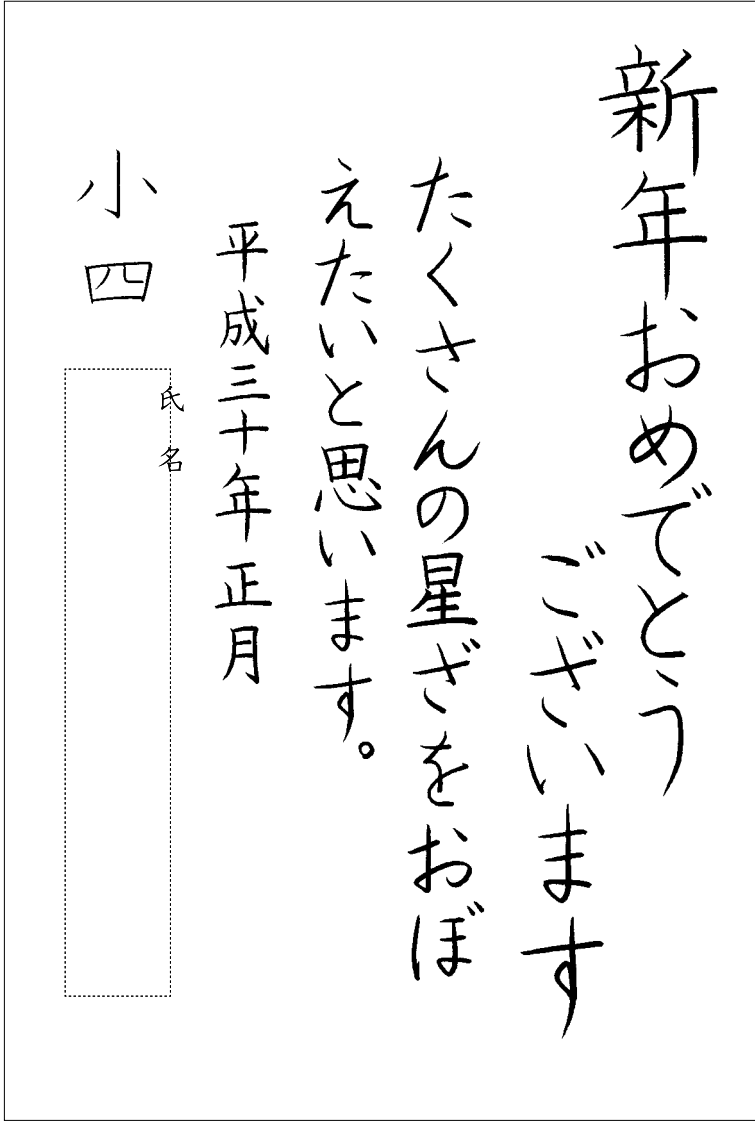 新年おめでとう
ございます
たくさんの星ざをおぼ
えたいと思います。
平成三十年正月
小四
氏名